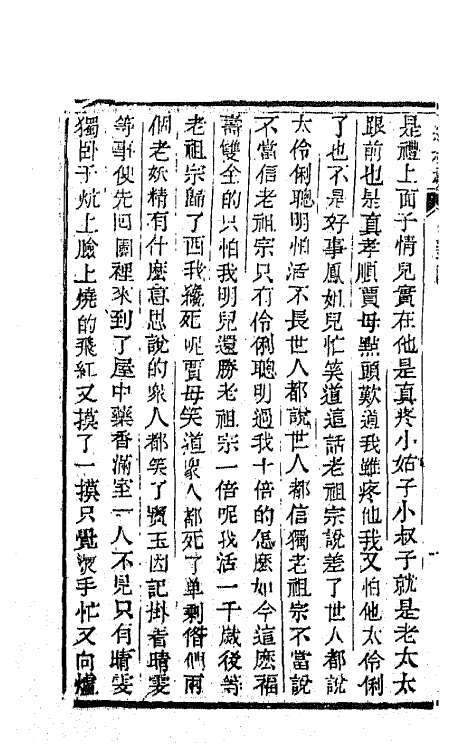 是禮上面子情兒實在他是真疼小姑子小叔子就是老太太
跟前也是真孝順賈母點頭歎道我雖疼他我又怕他太伶俐
了也不是好事鳳姐兒忙笑道這話老祖宗說差了世人都說
太伶俐聰明怕活不長世人都說世人都信獨老祖宗不當說
不當信老祖宗只有伶俐聰明過我十倍的怎麽如今這麽福
壽雙全的只怕我明兒還勝老祖宗一倍呢我活一千歲後等
老祖宗歸了西我纔死呢賈母笑道衆人都死了單剩偺們兩
個老妖精有什麽意思說的衆人都笑了寶玉因記掛着晴雯
等事便先囘園裡來到了屋中藥香滿室一人不見只有晴雯
獨卧于炕上臉上燒的飛紅又摸了一摸只覺燙手忙又向爐